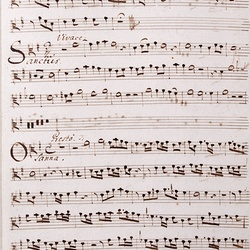 Vivace
Sanctus
Presto
Osanna.